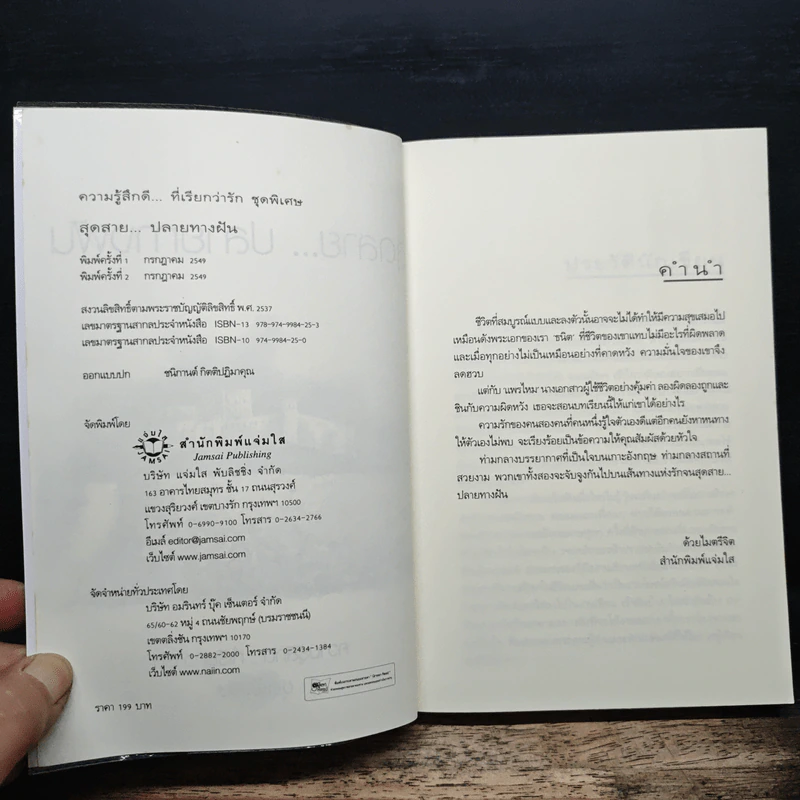 ความรู้สึกดี... ที่เรียกว่ารัก ชุดพิเศษ
สุดสาย... ปลายทางฝัน
พิมพ์ครั้งที่ 1 กรกฎาคม 2549
พิมพ์ครั้งที่ 2 กรกฎาคม 2549
สงวนลิขสิทธิ์ตามพระราชบัญญัติลิขสิทธิ์ พ.ศ. 2537
เลขมาตรฐานสากลประจำหนังสือ ISBN-13 978-974-9984-25-3
เลขมาตรฐานสากลประจำหนังสือ ISBN-10 974-9984-25-0
ออกแบบปก ชนิกานต์ กิตติปฏิมาคุณ
จัดพิมพ์โดย
สำนักพิมพ์แจ่มใส
Jamsai Publishing
บริษัท แจ่มใส พับลิชชิ่ง จำกัด
163 อาคารไทยสมุทร ชั้น 17 ถนนสุรวงศ์
แขวงสุริยวงศ์ เขตบางรัก กรุงเทพฯ 10500
โทรศัพท์ 0-6990-9100 โทรสาร 0-2634-2766
อีเมล์ editor@jamsai.com
เว็บไซต์ www.jamsai.com
จัดจำหน่ายทั่วประเทศโดย
บริษัท อมรินทร์ บุ๊ค เซ็นเตอร์ จำกัด
65/60-62 หมู่ 4 ถนนชัยพฤกษ์ (บรมราชชนนี)
เขตตลิ่งชัน กรุงเทพฯ 10170
โทรศัพท์ 0-2882-2000 โทรสาร 0-2434-1384
เว็บไซต์ www.naiin.com
ราคา 199 บาท
คำนำ
ชีวิตที่สมบูรณ์แบบและลงตัวนั้นอาจจะไม่ได้ทำให้มีความสุขเสมอไป
เหมือนดังพระเอกของเรา 'ธนิต' ที่ชีวิตของเขาแทบไม่มีอะไรที่ผิดพลาด
และเมื่อทุกอย่างไม่เป็นเหมือนอย่างที่คาดหวัง ความมั่นใจของเขาจึง
ลดฮวบ
แต่กับ 'แพรไหม' นางเอกสาวผู้ใช้ชีวิตอย่างคุ้มค่า ลองผิดลองถูกและ
ชินกับความผิดหวัง เธอจะสอนบทเรียนนี้ให้แก่เขาได้อย่างไร
ความรักของคนสองคนที่คนหนึ่งรู้ใจตัวเองดีแต่อีกคนยังหาหนทาง
ให้ตัวเองไม่พบ จะเรียงร้อยเป็นข้อความให้คุณสัมผัสด้วยหัวใจ
ท่ามกลางบรรยากาศที่เป็นใจบนเกาะอังกฤษ ท่ามกลางสถานที่
สวยงาม พวกเขาทั้งสองจะจับจูงกันไปบนเส้นทางแห่งรักจนสุดสาย...
ปลายทางฝัน
ด้วยไมตรีจิต
สำนักพิมพ์แจ่มใส